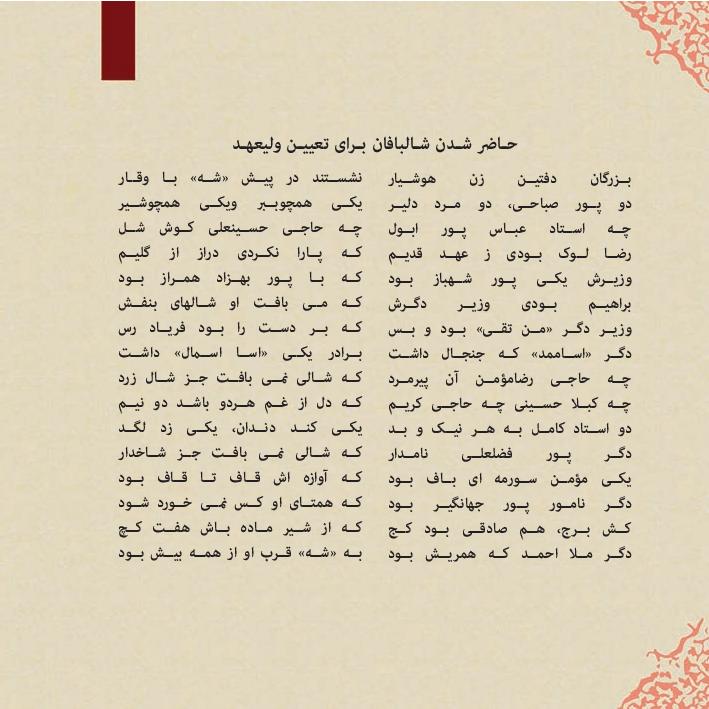 حاضر شدن شالبافان برای تعیین ولیعهد
بزرگان دفتین زن هوشیار نشستند در پیش «شه» با وقار
دو پور صباحی، دو مرد دلیر یکی همچوببر ویکی همچوشیر
چه استاد عباس پور ابول چه حاجی حسینعلی کوش شل
رضا لوک بودی ز عهد قدیم که پارا نکردی دراز از گلیم
وزیرش یکی پور شهباز بود که با پور بهزاد همراز بود
براهیم بودی وزیر دگرش که می بافت او شالهای بنفش
وزیر دگر «من تقی» بود و بس که بر دست را بود فریاد رس
دگر «اساممد» که جنجال داشت برادر یکی «اسا اسمال» داشت
چه حاجی رضامؤمن آن پیرمرد که شالی نمی بافت جز شال زرد
چه کبلا حسینی چه حاجی کریم که دل از غم هردو باشد دو نیم
دو استاد کامل به هر نیک و بد یکی کند دندان، یکی زد لگد
دگر پور فضلعلی نامدار که شالی نمی بافت جز شاخدار
یکی مؤمن سورمه ای باف بود که آوازه اش قاف تا قاف بود
دگر نامور پور جهانگیر بود که همتای او کس نمی خورد شود
کش برج، هم صادقی بود کج که از شیر ماده باش هفت کچ
دگر ملا احمد که همریش بود به «شه» قرب او از همه بیش بود